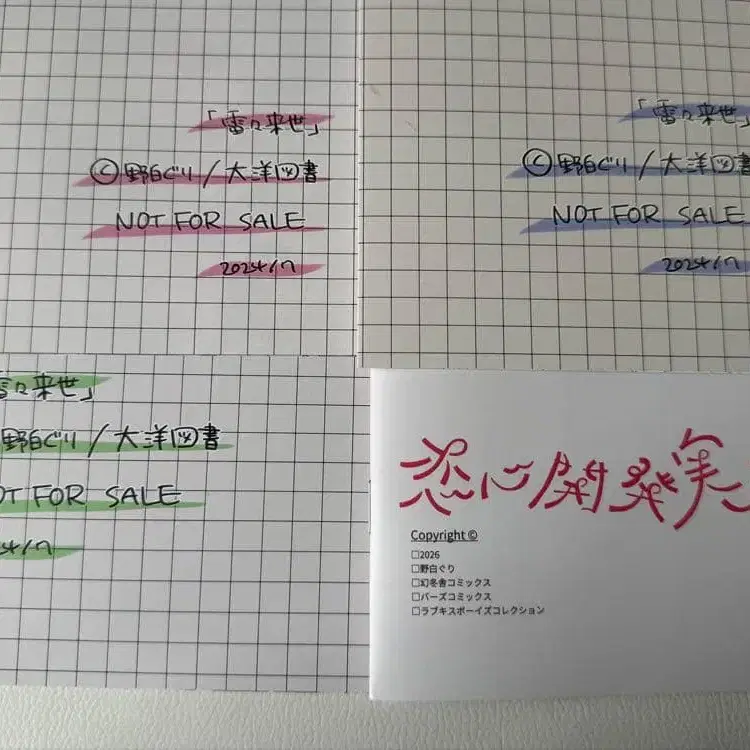 「雷々来世」
©野白ぐり/大洋図書
NOT FOR SALE
2024/7
「雷々来世」
©野白ぐり/大洋図書
NOT FOR SALE
2024/7
雷々来世」
野白ぐり/大洋図書
OT FOR SALE
4/7
恋心開発実
Copyright ©
□2026
□野白ぐり
□幻冬舎コミックス
□バーズコミックス
□ラブキスボーイズコレクション